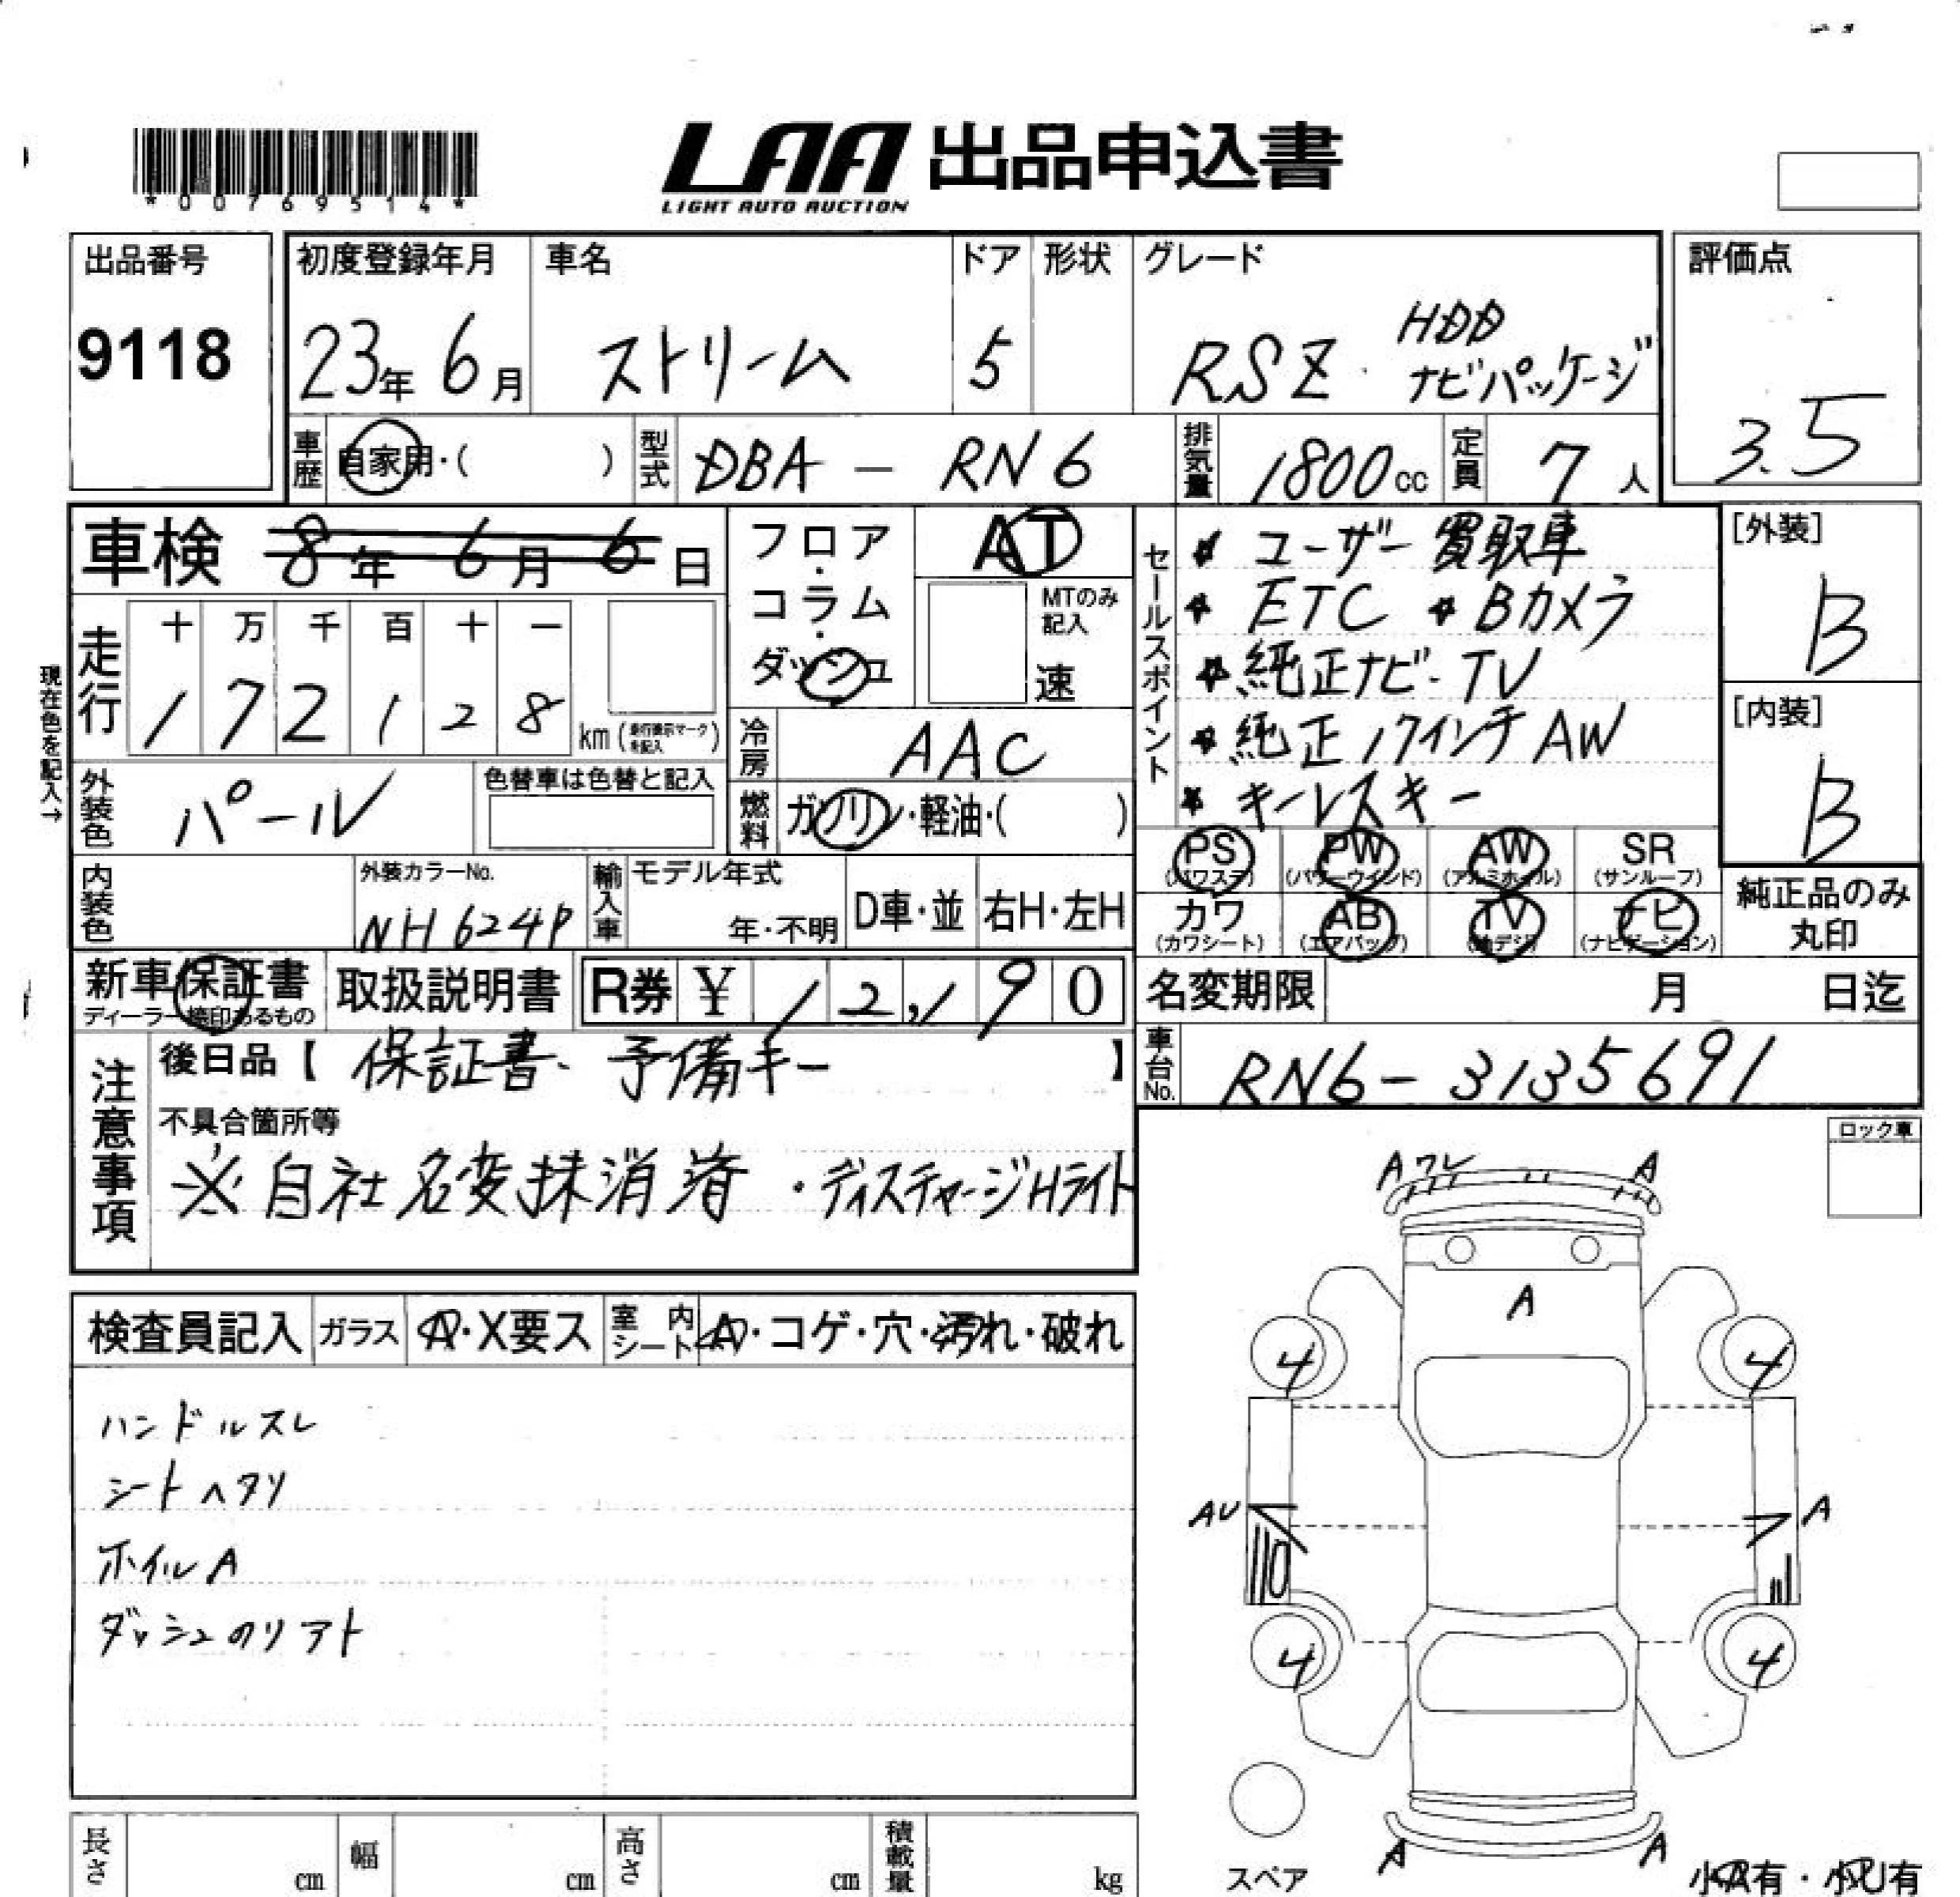 *00769514*
LAA 出品申込書
LIGHT AUTO AUCTION
出品番号
9118
初度登録年月
23年 6月
車名
ストリーム
ドア
5
形状
グレード
RSZ HDD
ナビパッケージ
評価点
3.5
車歴
自家用・( )
型式
DBA - RN6
排気量
1800cc
定員
7人
車検 8年 6月 6日
フロア・コラム・ダッシュ
AT
MTのみ記入
速
セールスポイント
★ ユーザー買取車
★ ETC ★ Bカメラ
★ 純正ナビ・TV
★ 純正17インチAW
★ キーレスキー
[外装]
B
[内装]
B
現在色を記入→
走行
十 万 千 百 十 一
1 7 2 1 2 8
km(走行表示マークを記入)
冷房
AAC
外装色
パール
色替車は色替と記入
燃料
ガソリン・軽油・( )
PS
(パワステ)
PW
(パワーウインド)
AW
(アルミホイル)
SR
(サンルーフ)
カワ
(カワシート)
AB
(エアバック)
TV
(地デジ)
ナビ
(ナビゲーション)
純正品のみ
丸印
内装色
外装カラーNo.
NH624P
輸入車
モデル年式
年・不明
D車・並
右H・左H
新車保証書
ディーラー捺印あるもの
取扱説明書
R券 ¥ 12,190
名変期限 月 日迄
車台No.
RN6-3135691
注意事項
後日品【 保証書・予備キー 】
不具合箇所等
※自社名変抹消済 ・ディスチャージHライト
ロック車
A ワレ A
A
4 4
AU A
4 4
A A
スペア
小A有・小U有
検査員記入
ガラス
A・X要ス
室内シート
A・コゲ・穴・汚れ・破れ
ハンドルスレ
シートヘタリ
ホイルA
ダッシュのリアト
長さ cm
幅 cm
高さ cm
積載量 kg